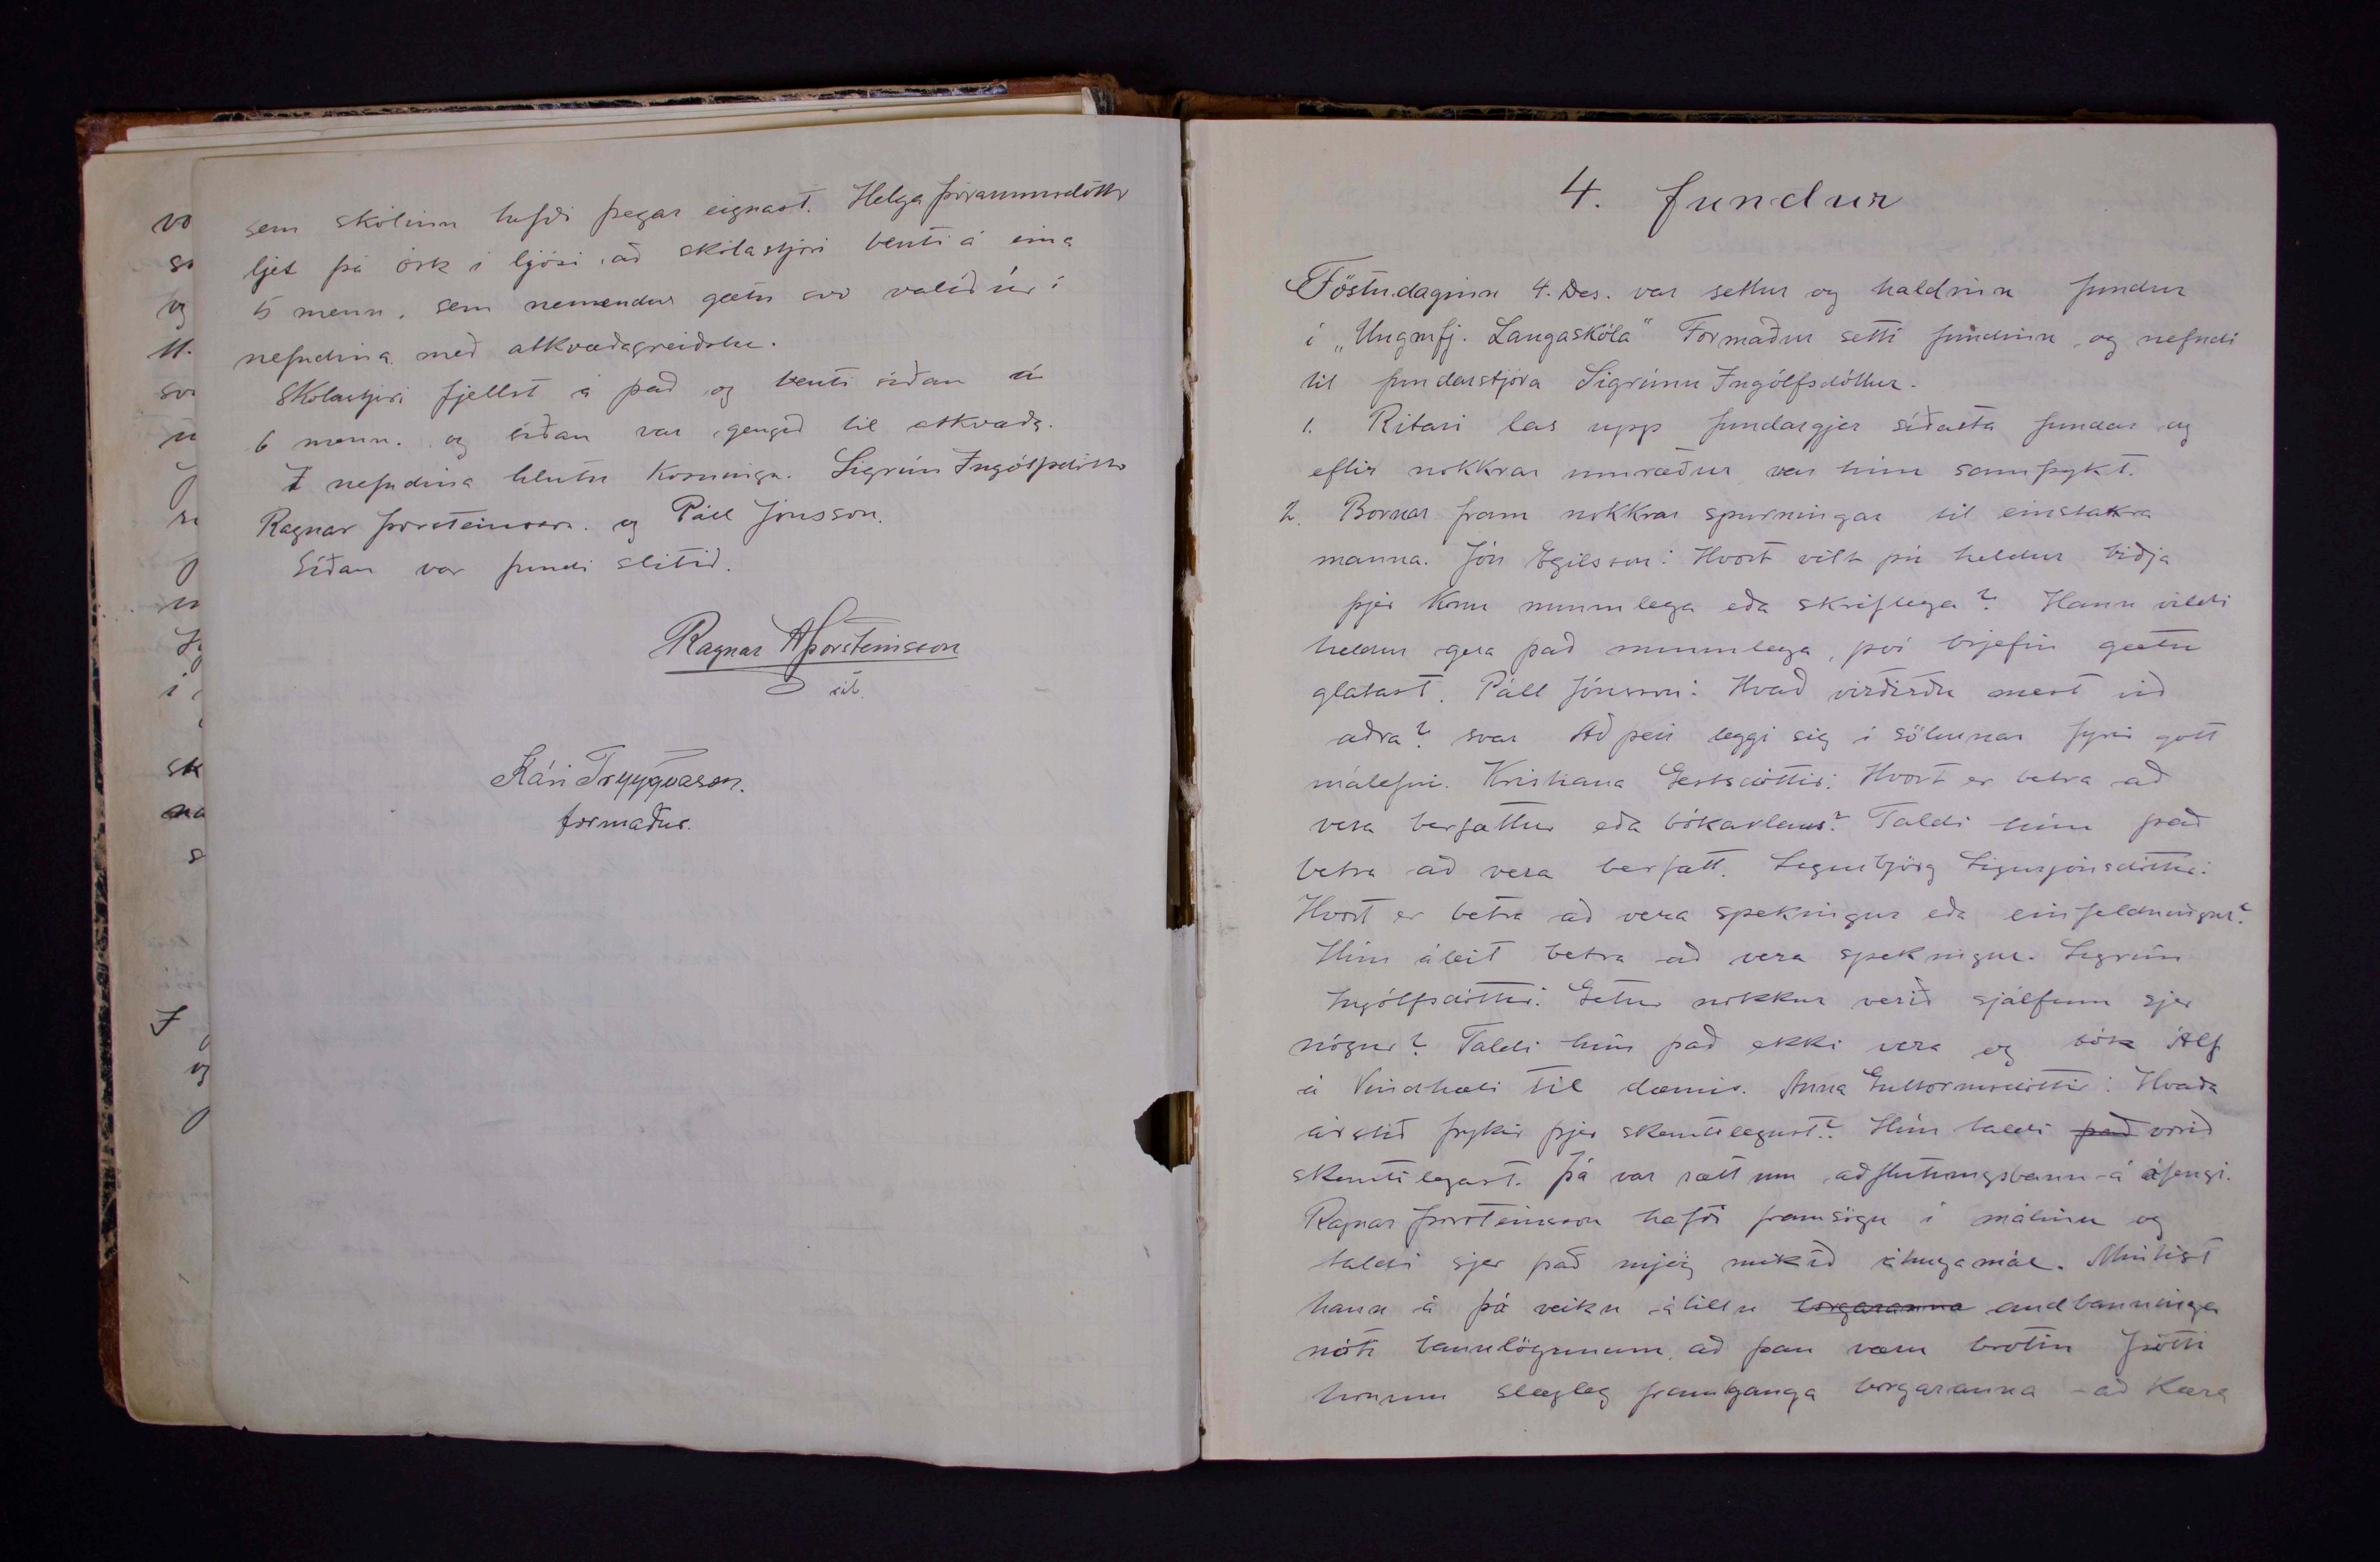 sem skólinn hefði þegar eignast. Helga Þórarinnsdóttir
ljet þá ósk í ljósi, að skólastjóri benti á eina
5 menn, sem nemendur gætu svo valið úr í
nefndina með atkvæðagreiðslu.
Skólastjóri fjellst á það og benti síðan á
6 menn. og síðan var gengið til atkvæða.
Í nefndina hlutu kosningu. Sigrún Ingólfsdóttir
Ragnar Þorsteinsson. og Páll Jónsson.
Síðan var fundi slitið.
Ragnar A Þorsteinsson
rit.
Kári Tryggvason.
formaður.
4. fundur
Föstudaginn 4. Des. var settur og haldinn fundur
í „Ungmfj. Laugaskóla" Formaður setti fundinn, og nefndi
til fundarstjóra Sigrúnu Ingólfsdóttur.
1. Ritari las upp fundargjer síðasta fundar og
eftir nokkrar umræður var hún samþykt.
2. Bornar fram nokkrar spurningar til einstakra
manna. Jón Egilsson: Hvort vilt þú heldur biðja
þjer konu munnlega eða skriflega? Hann vildi
heldur gera það munnlega, því brjefin gætu
glatast. Páll Jónsson: Hvað virðirðu mest við
aðra? svar Að þeir leggi sig í sölurnar fyrir gott
málefni. Kristiana Gestsdóttir: Hvort er betra að
vera berfættur eða bókarlaus? Taldi hún það
betra að vera berfætt. Sigurbjörg Sigurjónsdóttir:
Hvort er betra að vera spekingur eða einfeldningur?
Hún áleit betra að vera spekingur. Sigrún
Ingólfsdóttir: Getur nokkur verið sjálfum sjer
nógur? Taldi hún það ekki vera og tók Álf
á Vindhæli til dæmis. Anna Guttormsdóttir: Hvaða
árstíð þykir þjer skemtilegust? Hún taldi það vorið
skemtilegast. Þá var rætt um aðflutningsbann á áfengi.
Ragnar Þorsteinsson hafði framsögu í málinu og
taldi sjer það mjög mikið áhugamál. Mintist
hann á þá veiku átillu borgaranna andbanninga
móti bannlögunum, að þau væru brotin Þótti
honum slægleg framganga borgaranna að kæra